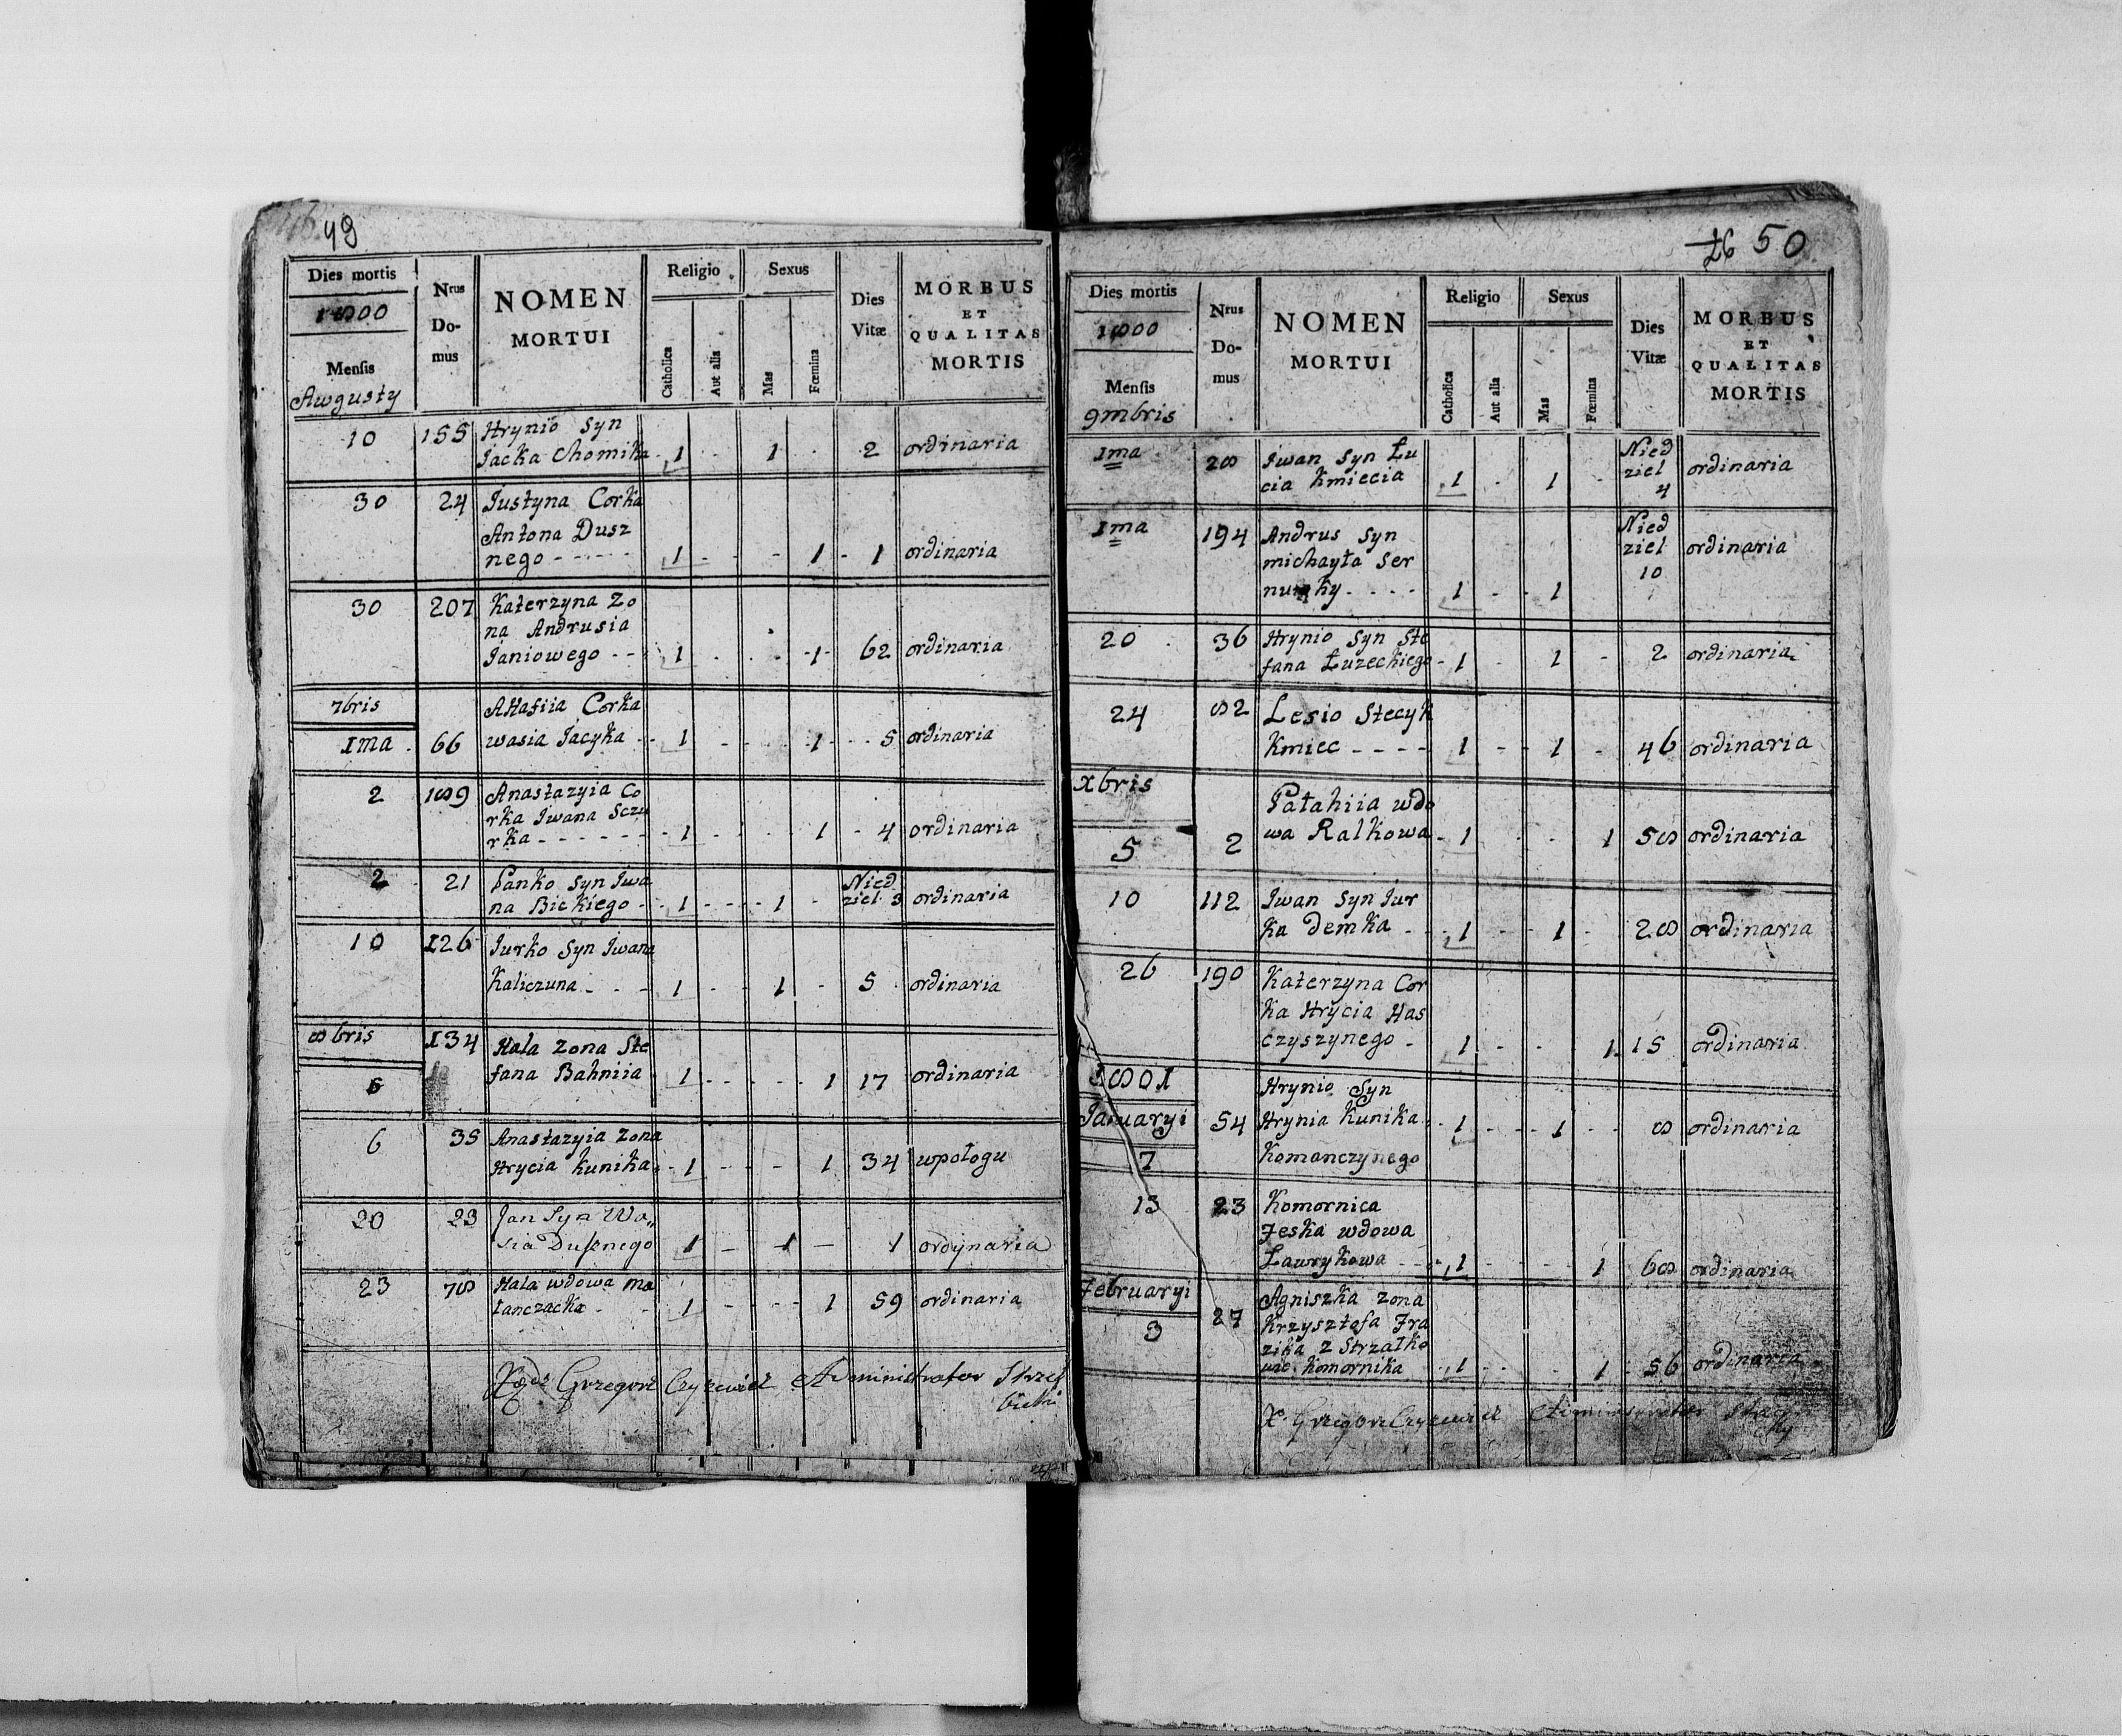 49
Dies mortis
1800
Mensis
Augusty
Nrus
Do-
mus
NOMEN
MORTUI
Religio
Catholica
Aut alia
Sexus
Mas
Fœmina
Dies
Vitæ
MORBUS
ET
QUALITAS
MORTIS
10 155 Hrynio Syn
Jacka Chomika 1 1 2 ordinaria
30 24 Justyna Corka
Antona Dusz
nego 1 1 1 ordinaria
30 207 Katerzyna Zo
na Andrusia
Janiowego 1 1 62 ordinaria
7bris
Ahafiia Corka
Ima 66 wasia Jacyka 1 1 5 ordinaria
2 189 Anastazyia Co
rka Jwana Sczu
rka 1 1 4 ordinaria
2 21 Panko Syn Jwa
na Bickiego 1 1 Nied
ziel 3 ordinaria
10 126 Jurko Syn Jwana
Kaliczuna 1 1 5 ordinaria
8bris
134 Hala Zona Ste
6 fana Bahniia 1 1 17 ordinaria
6 35 Anastazyia Zona
Hrycia Kunika 1 1 34 wpołogu
20 23 Jan Syn Wa„
sia Duſznego 1 1 1 ordynaria
23 78 Hala wdowa Ma
łanczacka 1 1 59 ordinaria
Xiądz Grzegorz Czyzewicz Administrator Strzel
bicki
26 50
Dies mortis
1800
Mensis
9mbris
Nrus
Do-
mus
NOMEN
MORTUI
Religio
Catholica
Aut alia
Sexus
Mas
Fœmina
Dies
Vitæ
MORBUS
ET
QUALITAS
MORTIS
Ima 28 Jwan Syn Łu
cia Kmiecia 1 1 Nied
ziel
4 ordinaria
Ima 194 Andrus Syn
michayła Ser
1 1 Nied
ziel
10 ordinaria
20 36 Hrynio Syn Ste
fana Łuzeckiego 1 1 2 ordinaria
24 82 Lesio Stecyk
Kmiec 1 1 46 ordinaria
Xbris
Pałahiia wdo
5 2 wa Ralkowa 1 1 58 ordinaria
10 112 Jwan Syn Jur
ka Demka 1 1 28 ordinaria
26 190 Katerzyna Cor
ka Hrycia Has
czyszynego 1 1 15 ordinaria
1801
Januaryi
7
54 Hrynio Syn
Hrynia Kunika
Komanczynego 1 1 8 ordinaria
13 23 Komornica
Feska wdowa
Ławrykowa 1 1 68 ordinaria
Februaryi
3
27 Agniszka Zona
Krzysztofa Fra
zika z Strzałko
wic Komornika 1 1 56 ordinaria
X. Grzegorz Czyzewicz Administrator